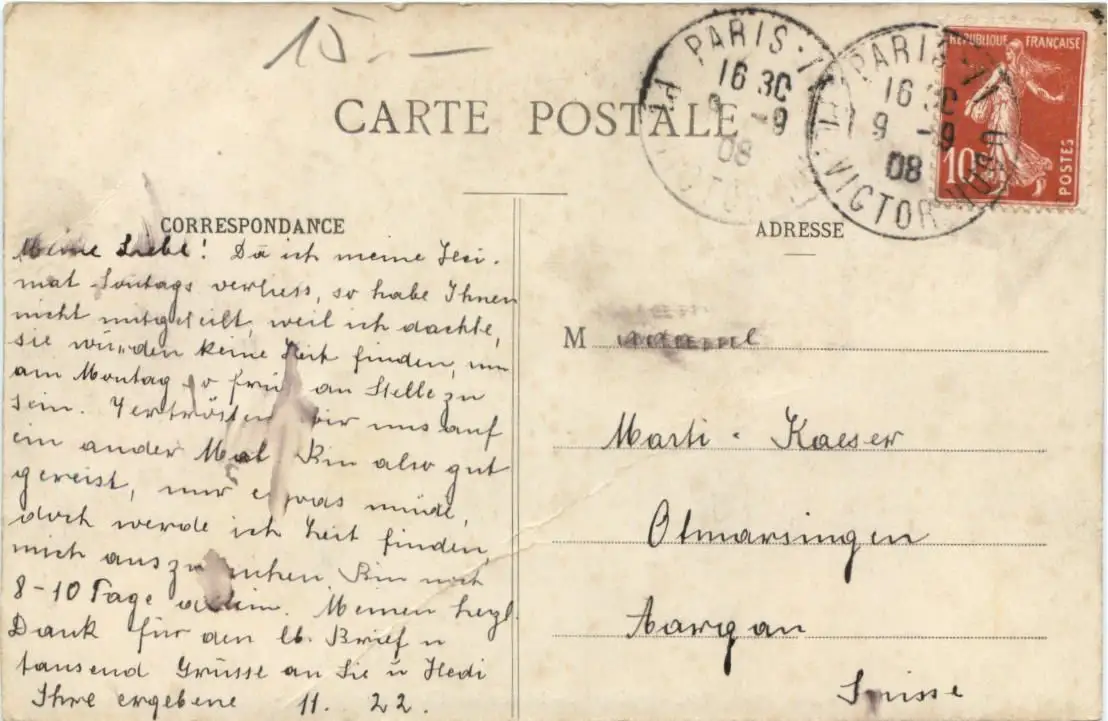 15.—
CARTE POSTALE
PARIS
16 30
9 -9
08
PARIS
16 30
9 -9
08
VICTOR HUGO
REPUBLIQUE FRANÇAISE
10
POSTES
CORRESPONDANCE
Meine Liebe! Da ich meine Hei-
mat Sontags verliess, so habe Ihnen
nicht mitgeteilt, weil ich dachte,
sie würden keine Zeit finden, um
am Montag so früh an Stelle zu
sein. Vertrösten wir uns auf
ein ander Mal Bin also gut
gereist, nur etwas müde,
doch werde ich Zeit finden,
mich auszuruhen. Bin noch
8-10 Tage allein. Meinen herzl.
Dank für den lb. Brief u
tausend Grüsse an Sie u Hedi
Ihre ergebene 11. 22.
ADRESSE
M
Marti - Kaeser
Otmarsingen
Aargau
Suisse